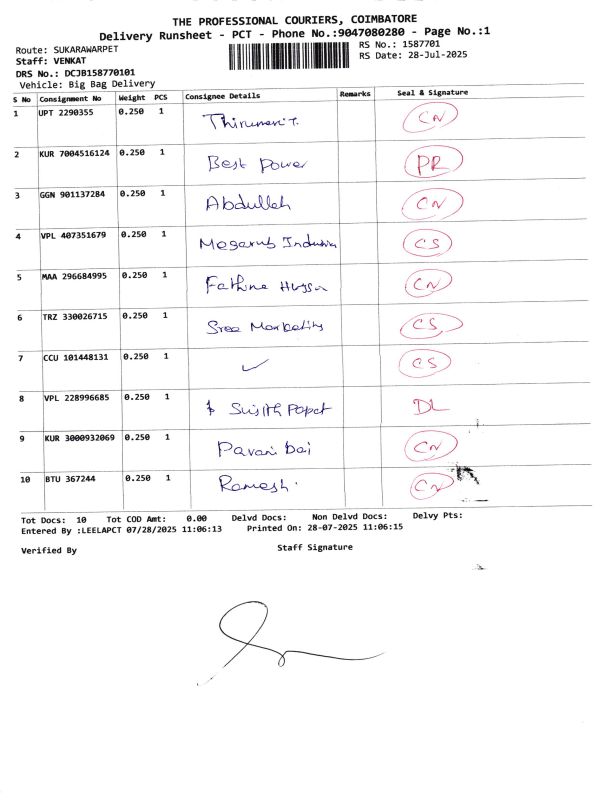 THE PROFESSIONAL COURIERS, COIMBATORE
Delivery Runsheet - PCT - Phone No.:9047080280 - Page No.:1
Route: SUKARAWARPET RS No.: 1587701
Staff: VENKAT RS Date: 28-Jul-2025
DRS No.: DCJB158770101
Vehicle: Big Bag Delivery
S No Consignment No Weight PCS Consignee Details Remarks Seal & Signature
1 UPT 2290355 0.250 1 CN
2 KUR 7004516124 0.250 1 Best Power PR
3 GGN 901137284 0.250 1 Abdullah CN
4 VPL 407351679 0.250 1 CS
5 MAA 296684995 0.250 1 CN
6 TRZ 330026715 0.250 1 Sree Marketing CS
7 CCU 101448131 0.250 1 ✓ CS
8 VPL 228996685 0.250 1 DL
9 KUR 3000932069 0.250 1 Pavani bai CN
10 BTU 367244 0.250 1 Ramesh. CN
Tot Docs: 10 Tot COD Amt: 0.00 Delvd Docs: Non Delvd Docs: Delvy Pts:
Entered By :LEELAPCT 07/28/2025 11:06:13 Printed On: 28-07-2025 11:06:15
Verified By Staff Signature